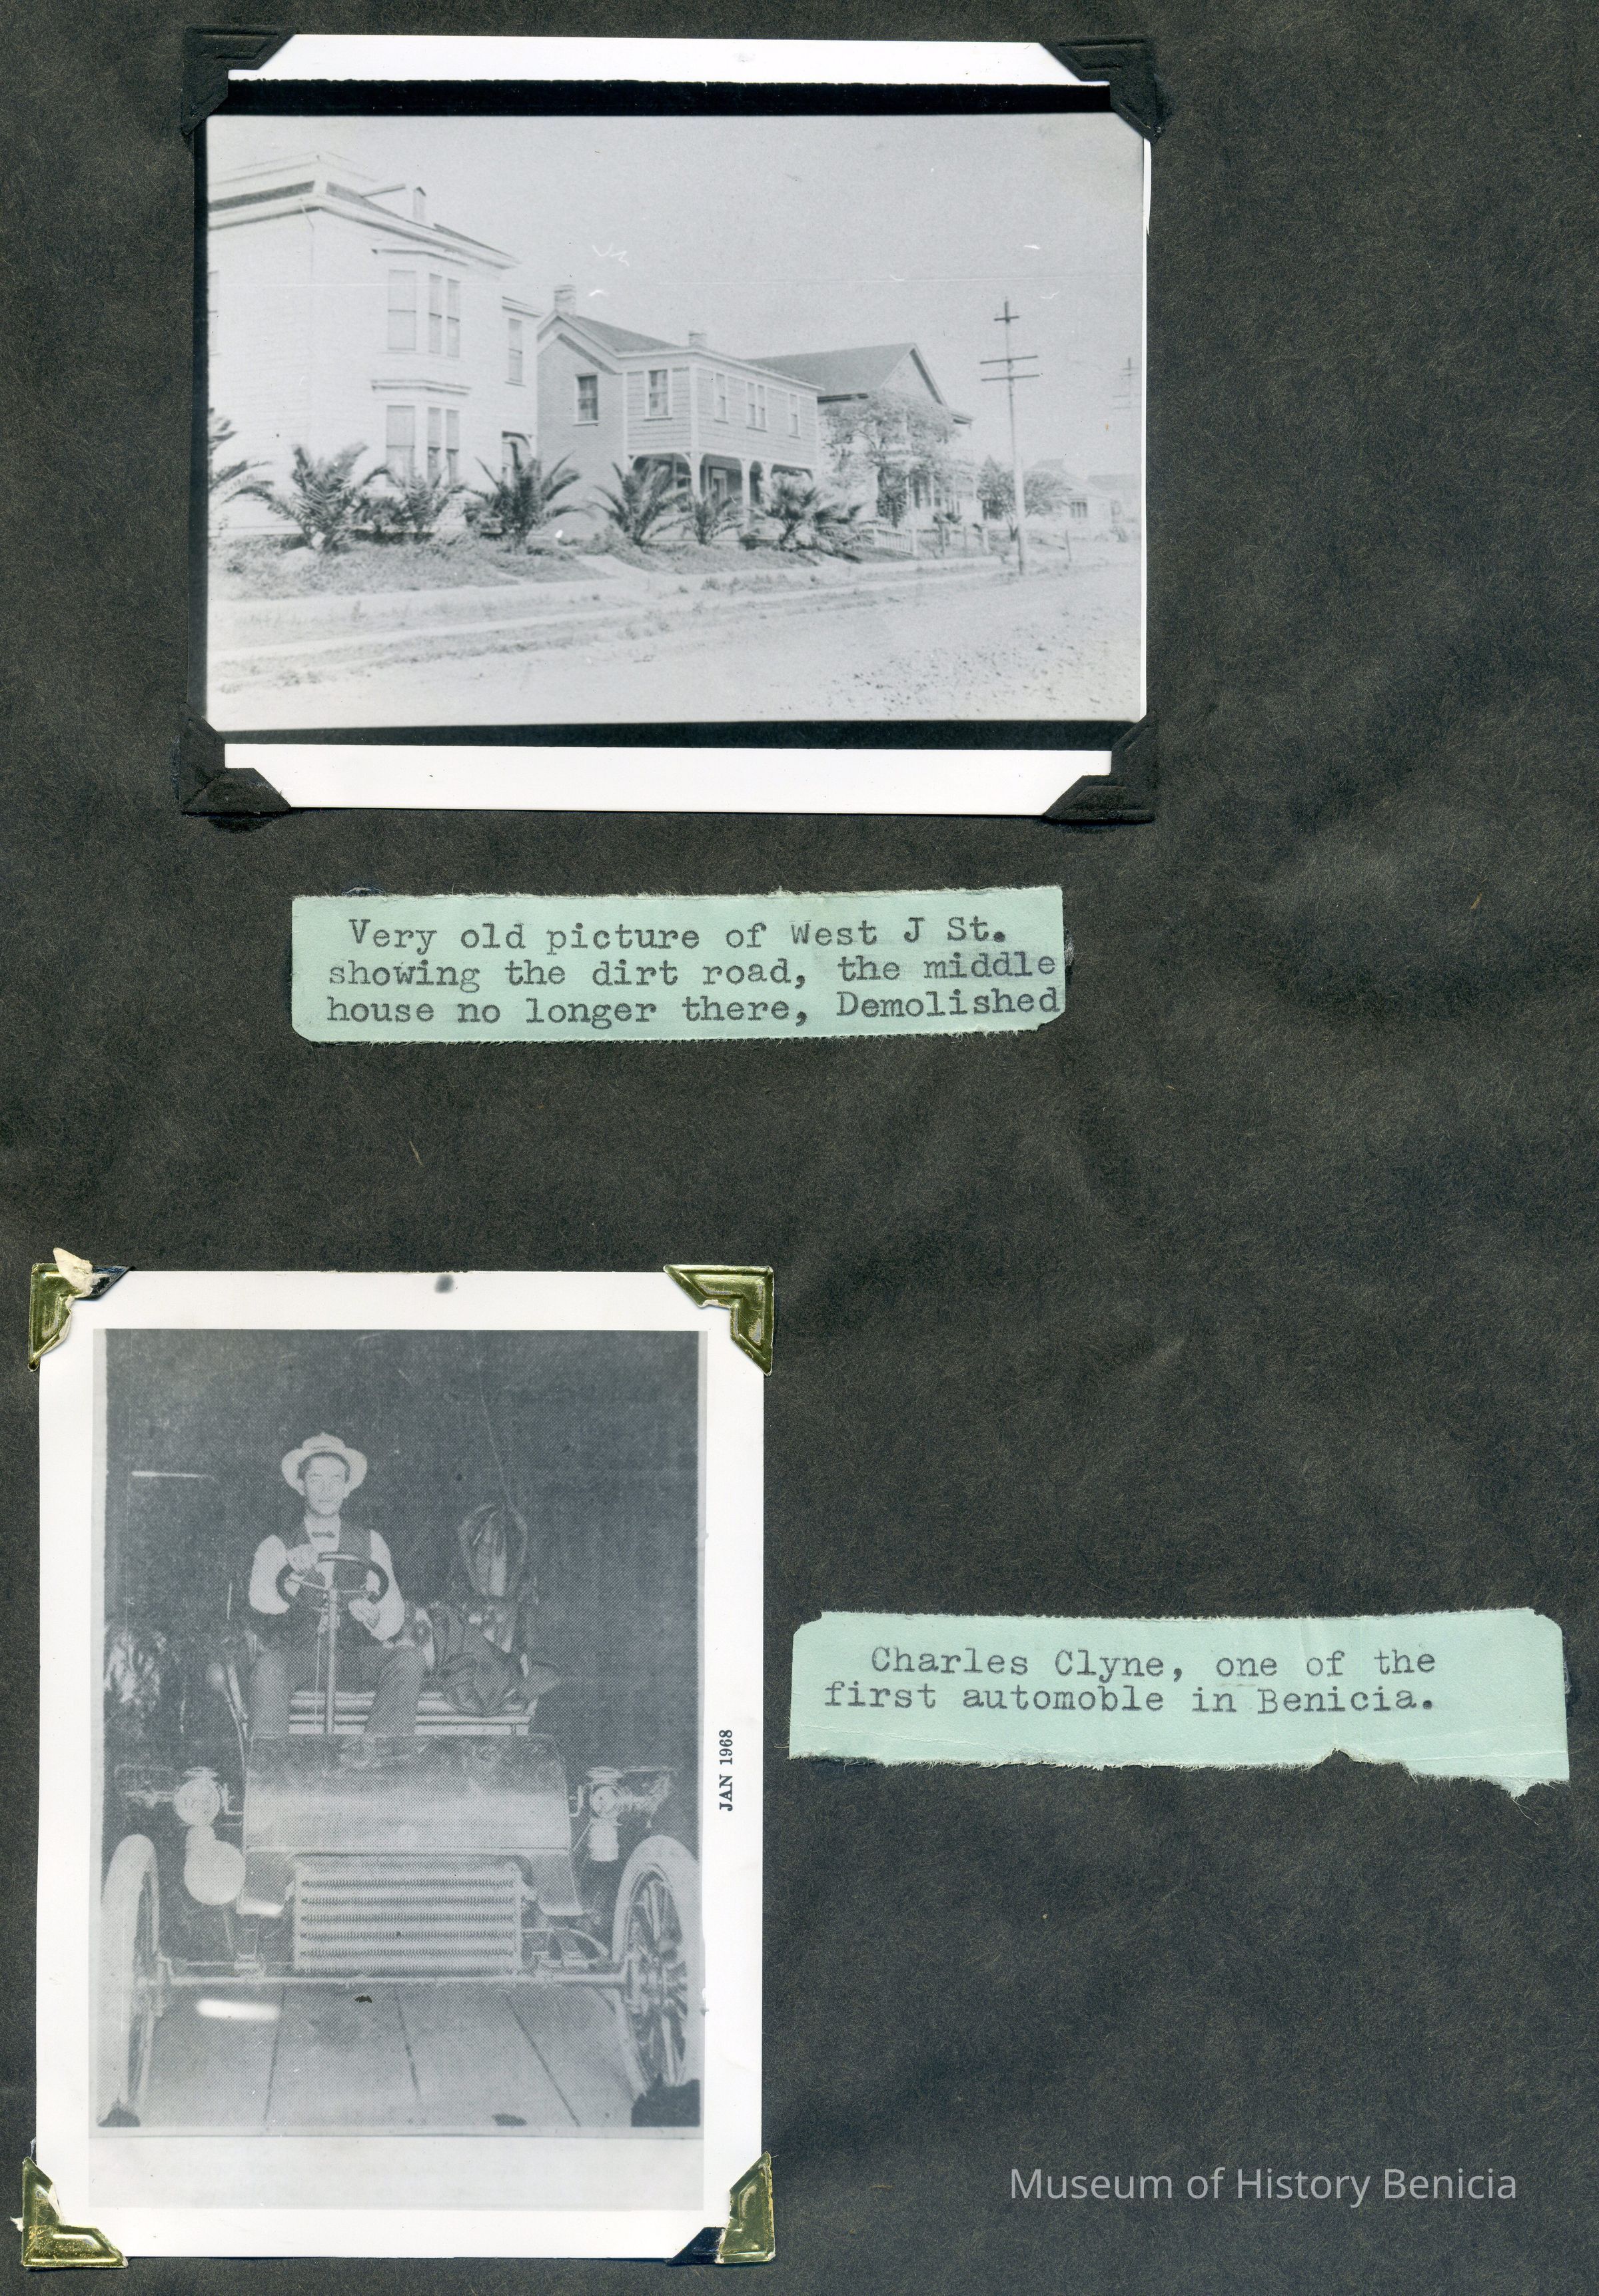 Very old picture of West J St.
showing the dirt road, the middle
house no longer there, Demolished
JAN 1968
Charles Clyne, one of the
first automoble in Benicia.
Museum of History Benicia